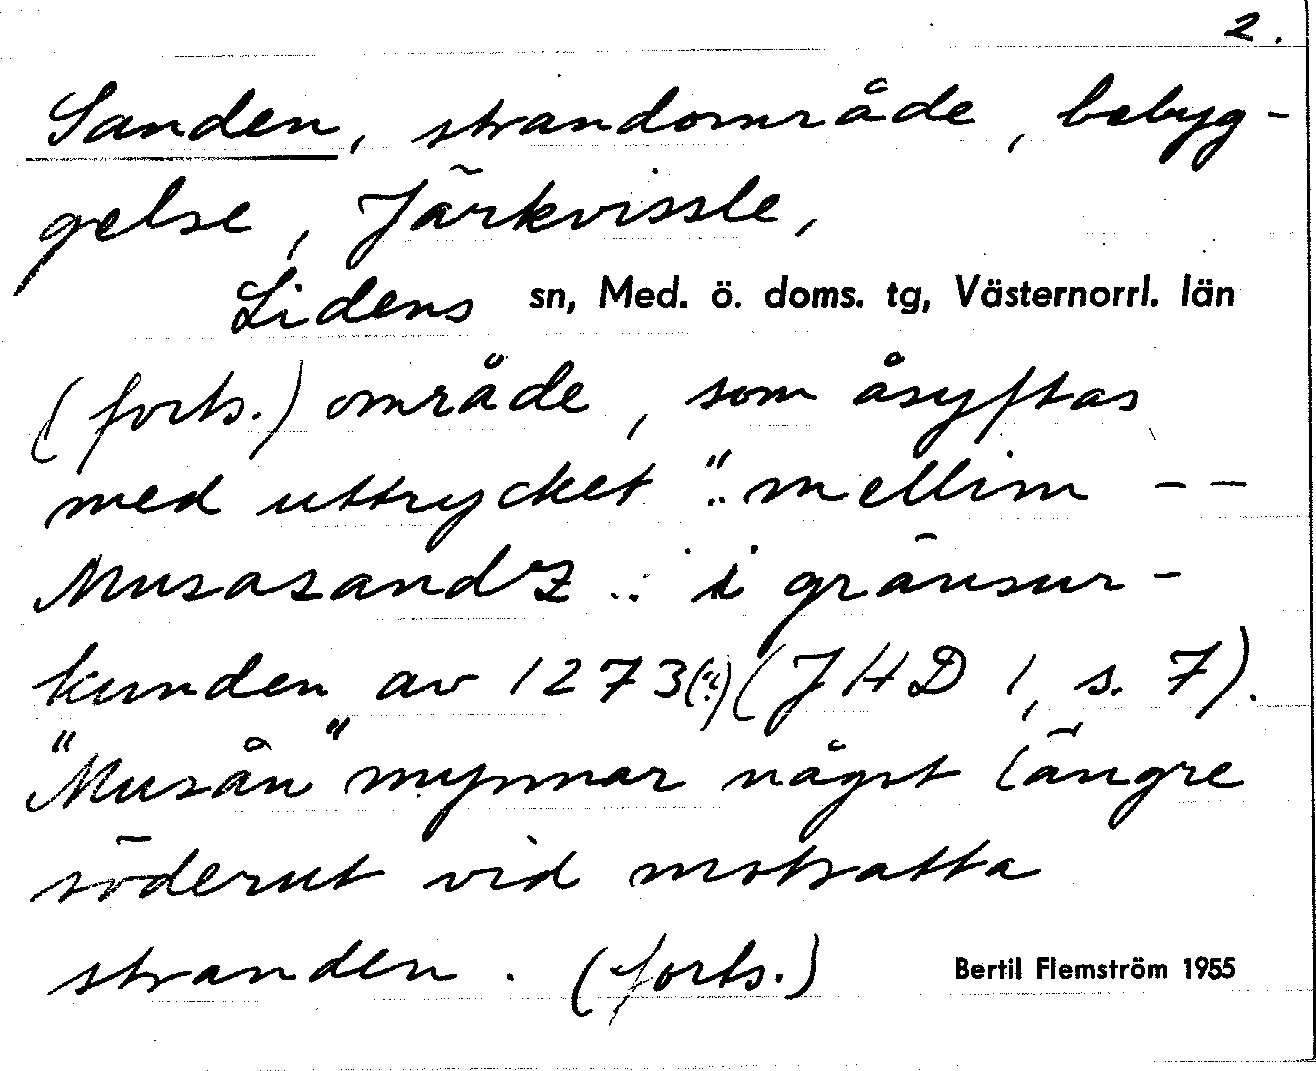 2.
Sanden, strandområde, bebyg-
gelse, Järkvissle,
Lidens sn, Med. ö. doms. tg, Västernorrl. län
(forts.) område, som åsyftas
med uttrycket "..mellim --
Musasandz .. i gränsur-
kunden av 1273(?) (JHD 1, s. 7).
"Musån" mynnar något längre
söderut vid motsatta
stranden. (forts.)
Bertil Flemström 1955